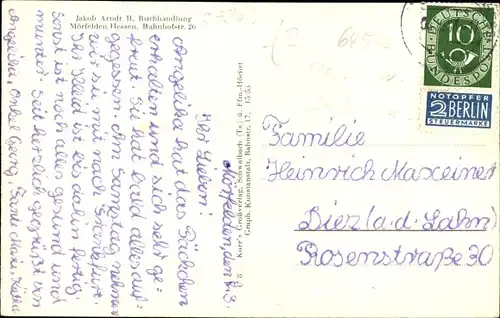 Jakob Arndt II, Buchhandlung
Mörfelden Hessen, Bahnhofstr. 26
Mörfelden, den
Ihr Lieben!
Angelika hat das Päckchen
erhalten und sich sehr ge-
freut. Sie hat bald alles auf-
gegessen. Am Samstag nehmen
wir sie mit nach Frankfurt.
Ihr Kleid ist bis dahin fertig.
Sonst ist noch alles gesund und
munter. Seid herzlich gegrüßt von
Angelika, Onkel Georg, Tante
Kurr's Großverlag, Schwalbach (Ts.) u. Ffm.-Höchst
Graph. Kunstanstalt, Bahnstr. 17,
DEUTSCHE
BUNDESPOST
10
NOTOPFER
2 BERLIN
STEUERMARKE
Familie
Heinrich Maxeiner
Diez (a. d. Lahn)
Rosenstraße 30